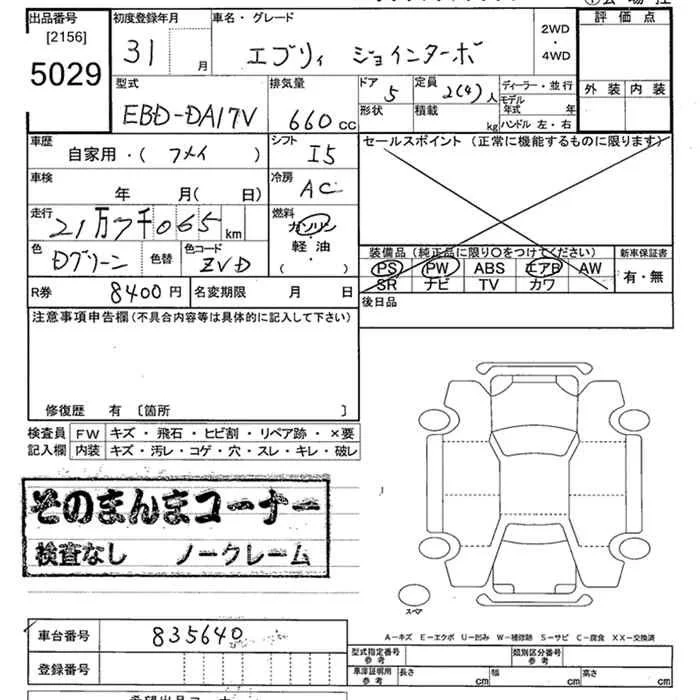 出品番号 [2156] 5029
初度登録年月 31 月
車名・グレード エブリィ ジョインターボ
2WD・4WD
評価点
外装 内装
型式 EBD-DA17V
排気量 660 cc
ドア 5 定員 2(4)人
形状 積載 kg
ディーラー・並行
モデル年式 年
ハンドル 左・右
車歴 自家用・( フメイ )
シフト I5
セールスポイント (正常に機能するものに限ります)
車検 年 月( 日)
冷房 AC
走行 21万7千065 km
燃料 ガソリン・軽油・( )
色 Dグリーン 色替 色コード ZVD
装備品 (純正品に限り〇をつけてください) 新車保証書
PS PW ABS エアB AW 有・無
SR ナビ TV カワ
R券 8400円 名変期限 月 日
後日品
注意事項申告欄 (不具合内容等は具体的に記入して下さい)
修復歴 有 〔箇所 〕
検査員 FW キズ・飛石・ヒビ割・リペア跡・×要
記入欄 内装 キズ・汚レ・コゲ・穴・スレ・キレ・破レ
そのまんまコーナー
検査なし ノークレーム
スペア
A−キズ E−エクボ U−凹み W−補修跡 S−サビ C−腐食 XX−交換済
車台番号 835640
型式指定番号 参考 類別区分番号 参考
登録番号
車庫証明用 参考 長さ cm 幅 cm 高さ cm
希望出品コーナー